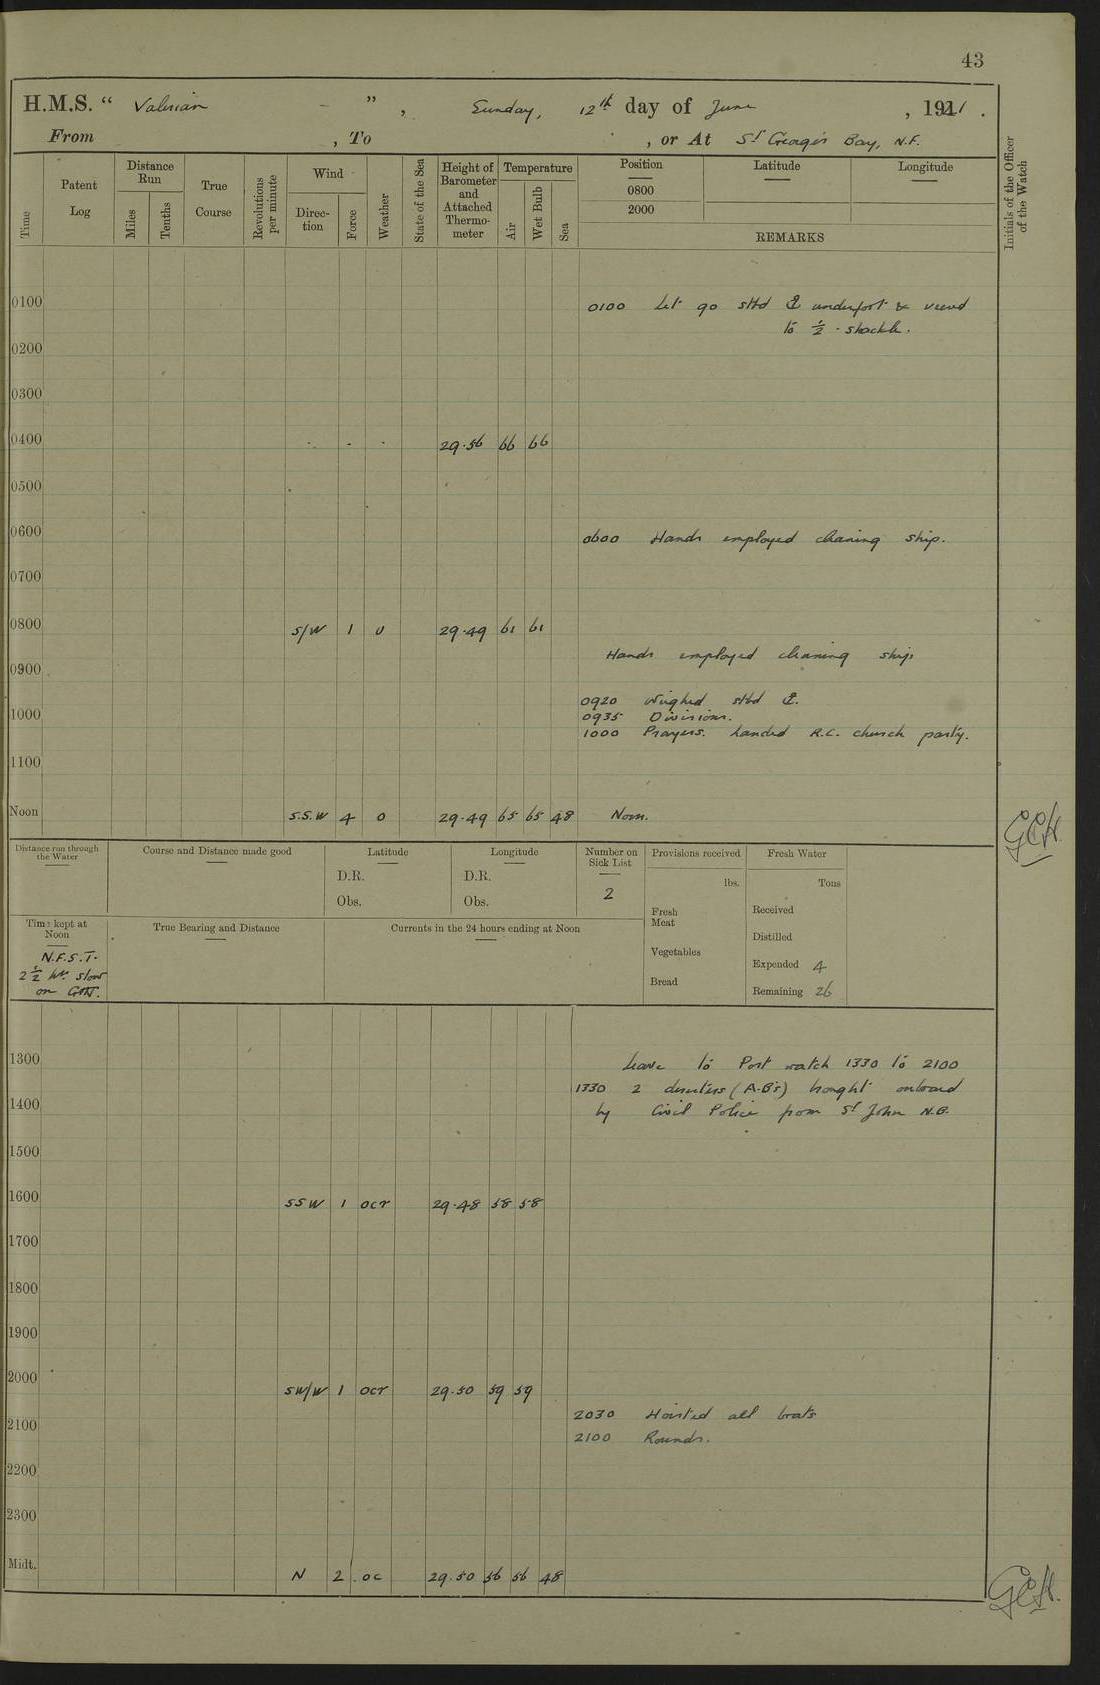 43
H.M.S. “ Valerian - ” , Sunday, 12th day of June , 1921 .
From , To , or At St George's Bay, N.F.
Time
Patent Log
Distance Run
Miles
Tenths
True Course
Revolutions per minute
Wind
Direction
Force
Weather
State of the Sea
Height of Barometer and Attached Thermometer
Temperature
Air
Wet Bulb
Sea
Position
0800
2000
Latitude
Longitude
REMARKS
Initials of the Officer of the Watch
0100 0100 Let go stbd ⚓ underfoot & veered
to ½ - shackle.
0200
0300
0400 - - - 29.56 66 66
0500
0600 0600 Hands employed cleaning ship.
0700
0800 S/W 1 0 29.49 61 61
Hands employed cleaning ship
0900
0920 Weighed stbd ⚓.
1000 0935 Divisions.
1000 Prayers. Landed R.C. church party.
1100
Noon S.S.W 4 0 29.49 65 65 48 Noon.
GCH.
Distance run through the Water
Course and Distance made good
Latitude
D.R.
Obs.
Longitude
D.R.
Obs.
Number on Sick List
2
Provisions received
lbs.
Fresh Meat
Vegetables
Bread
Fresh Water
Tons
Received
Distilled
Expended 4
Remaining 26
Time kept at Noon
N.F.S.T.
2½ hrs. slow
on GMT.
True Bearing and Distance
Currents in the 24 hours ending at Noon
1300 Leave to Port watch 1330 to 2100
1330 2 deserters (A.B's) brought onboard
1400 by Civil Police from St John N.B.
1500
1600 SSW 1 ocr 29.48 58 58
1700
1800
1900
2000 SW/W 1 ocr 29.50 59 59
2030 Hoisted all boats
2100 2100 Rounds.
2200
2300
Midt. N 2 oc 29.50 56 56 48
GCH.